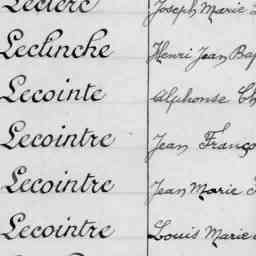 Leclerc Joseph Marie
Leclinche Henri Jean Bap
Lecointe Alphonse Ch
Lecointre Jean Franço
Lecointre Jean Marie
Lecointre Louis Marie